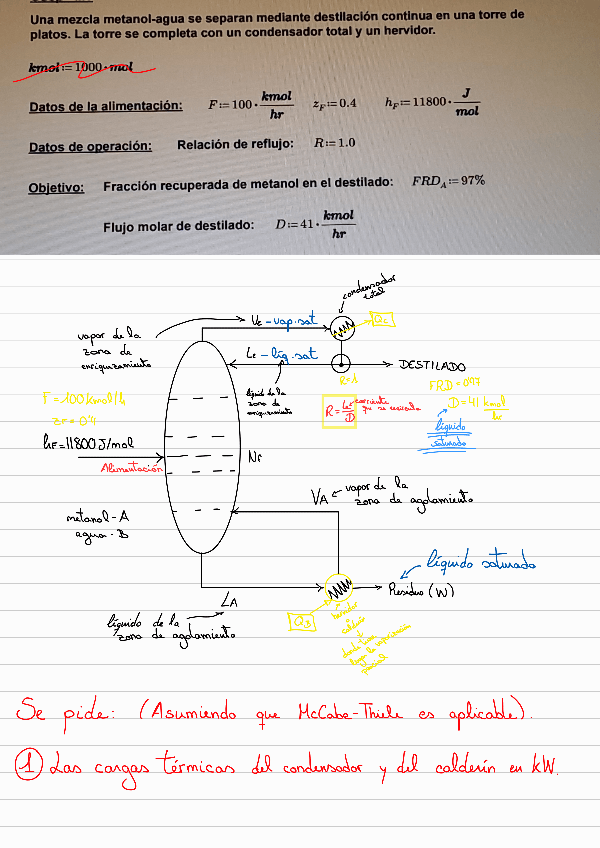 Una mezcla metanol-agua se separan mediante destilación continua en una torre de
platos. La torre se completa con un condensador total y un hervidor.
kmol:=1000·mol
Datos de la alimentación: F:=100·kmol/hr z_F:=0.4 h_F:=11800·J/mol
Datos de operación: Relación de reflujo: R:=1.0
Objetivo: Fracción recuperada de metanol en el destilado: FRD_A:=97%
Flujo molar de destilado: D:=41·kmol/hr
condensador
total
VE-vap.sat
Qc
vapor de la
zona de
enriquecimiento
LE-líq.sat
DESTILADO
R=1
FRD=0'97
líquido de la
zona de
enriquecimiento
R=LE/D
corriente
que se recircula
D=41 kmol/hr
líquido
saturado
F=100 kmol/h
zF=0'4
hF=11800 J/mol
Alimentación
NF
VA
vapor de la
zona de agotamiento
metanol-A
agua-B
líquido saturado
Residuo (W)
LA
líquido de la
zona de agotamiento
hervidor
calderín
Se pide: (Asumiendo que McCabe-Thiele es aplicable).
1 Las cargas térmicas del condensador y del calderín en kW.